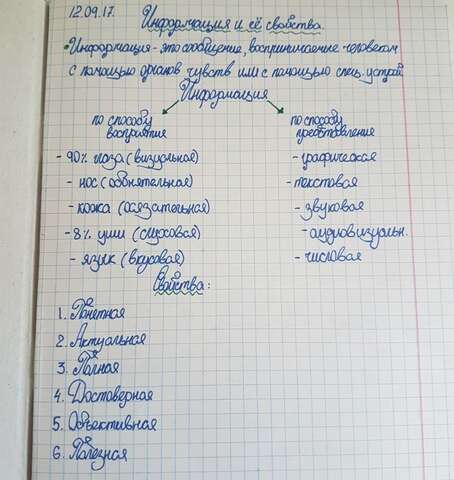 12.09.17. Информация и её свойства.
•Информация - это сообщение, воспринимаемые человеком
с помощью органов чувств или с помощью спец. устрой
Информация
по способу
восприятие
- 90% глаза (визуальная)
- нос (обонятельная)
- кожа (осязательная)
- 8% уши (слуховая)
- язык (вкусовая)
по способу
представления
- графическая
- текстовая
- звуковая
- аудиовизуальн.
- числовая
Свойства:
1. Понятная
2. Актуальная
3. Полная
4. Достоверная
5. Объективная
6. Полезная